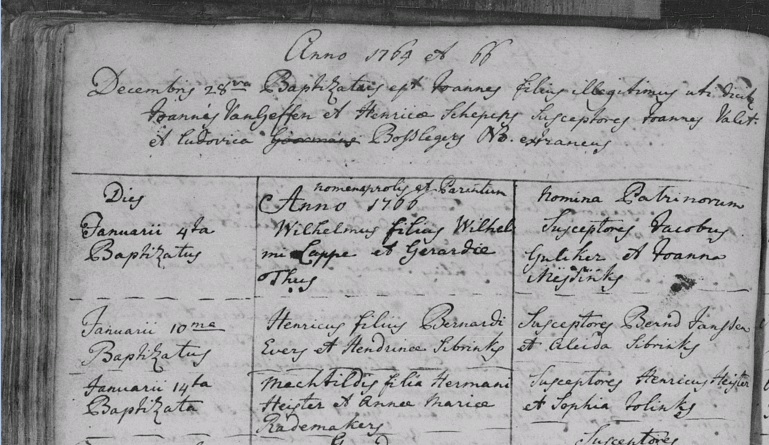 Anno 1764 et 66
Decembris 28va Baptizatus est Joannes filius illegitimus uti dicit
Joannes Van Geffen et Henricæ Schepers Susceptores Joannes Valet
et Ludovica Bosslegers NB. extraneus
Dies
nomen prolis et Parentum
Anno 1766
nomina Patrinorum
Januarii 4ta
Baptizatus
Wilhelmus filius Wilhel
mi Lappe et Gerardiæ
Thus
Susceptores Jacobus
Guliker et Joanna
Januarii 10ma
Baptizatus
Henricus filius Bernardi
Evers et Hendrinæ Sibrinks
Susceptores Bernd Janssen
et Aleida Sibrinks
Januarii 14ta
Baptizata
Machtildis filia Hermani
Heister et Annæ Mariæ
Rademakers
Susceptores Henricus Heister
et Sophia Tolinks
Susceptores